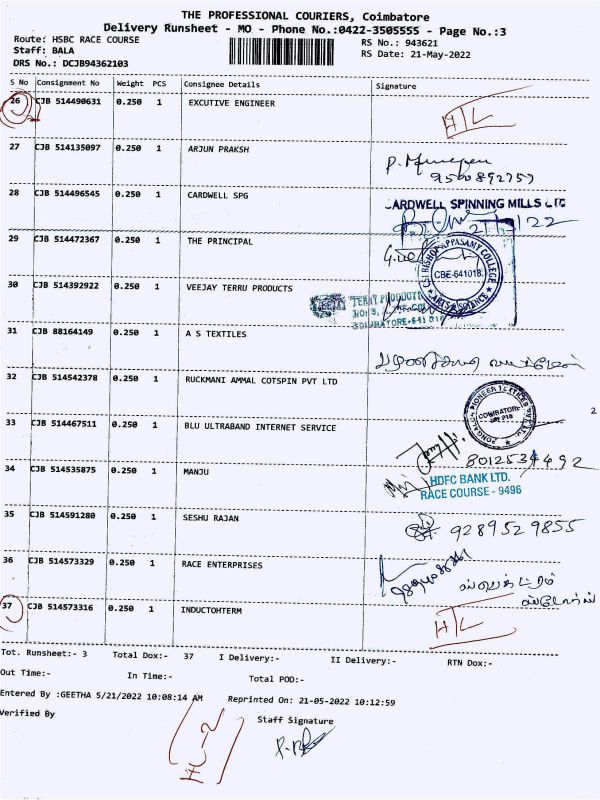 THE PROFESSIONAL COURIERS, Coimbatore
Delivery Runsheet - MO - Phone No.:0422-3505555 - Page No.:3
Route: HSBC RACE COURSE RS No.: 943621
Staff: BALA RS Date: 21-May-2022
DRS No.: DCJB94362103
S No Consignment No Weight PCS Consignee Details Signature
26 CJB 514490631 0.250 1 EXCUTIVE ENGINEER
27 CJB 514135097 0.250 1 ARJUN PRAKSH
9500892757
28 CJB 514496545 0.250 1 CARDWELL SPG
ARDWELL SPINNING MILLS LTD
29 CJB 514472367 0.250 1 THE PRINCIPAL
CSI BISHOP APPASAMY COLLEGE
CBE-641018.
ARTS & SCIENCE
30 CJB 514392922 0.250 1 VEEJAY TERRU PRODUCTS
TERRY PRODUCTS
COIMBATORE-641 018
31 CJB 88164149 0.250 1 A S TEXTILES
32 CJB 514542378 0.250 1 RUCKMANI AMMAL COTSPIN PVT LTD
COIMBATORE
2
33 CJB 514467511 0.250 1 BLU ULTRABAND INTERNET SERVICE
8012534492
34 CJB 514535875 0.250 1 MANJU
HDFC BANK LTD.
RACE COURSE - 9496
35 CJB 514591280 0.250 1 SESHU RAJAN
9289529855
36 CJB 514573329 0.250 1 RACE ENTERPRISES
ஸ்டோர்ஸ்
37 CJB 514573316 0.250 1 INDUCTOHTERM
Tot. Runsheet:- 3 Total Dox:- 37 I Delivery:- II Delivery:- RTN Dox:-
Out Time:- In Time:- Total POD:-
Entered By :GEETHA 5/21/2022 10:08:14 AM Reprinted On: 21-05-2022 10:12:59
Verified By Staff Signature